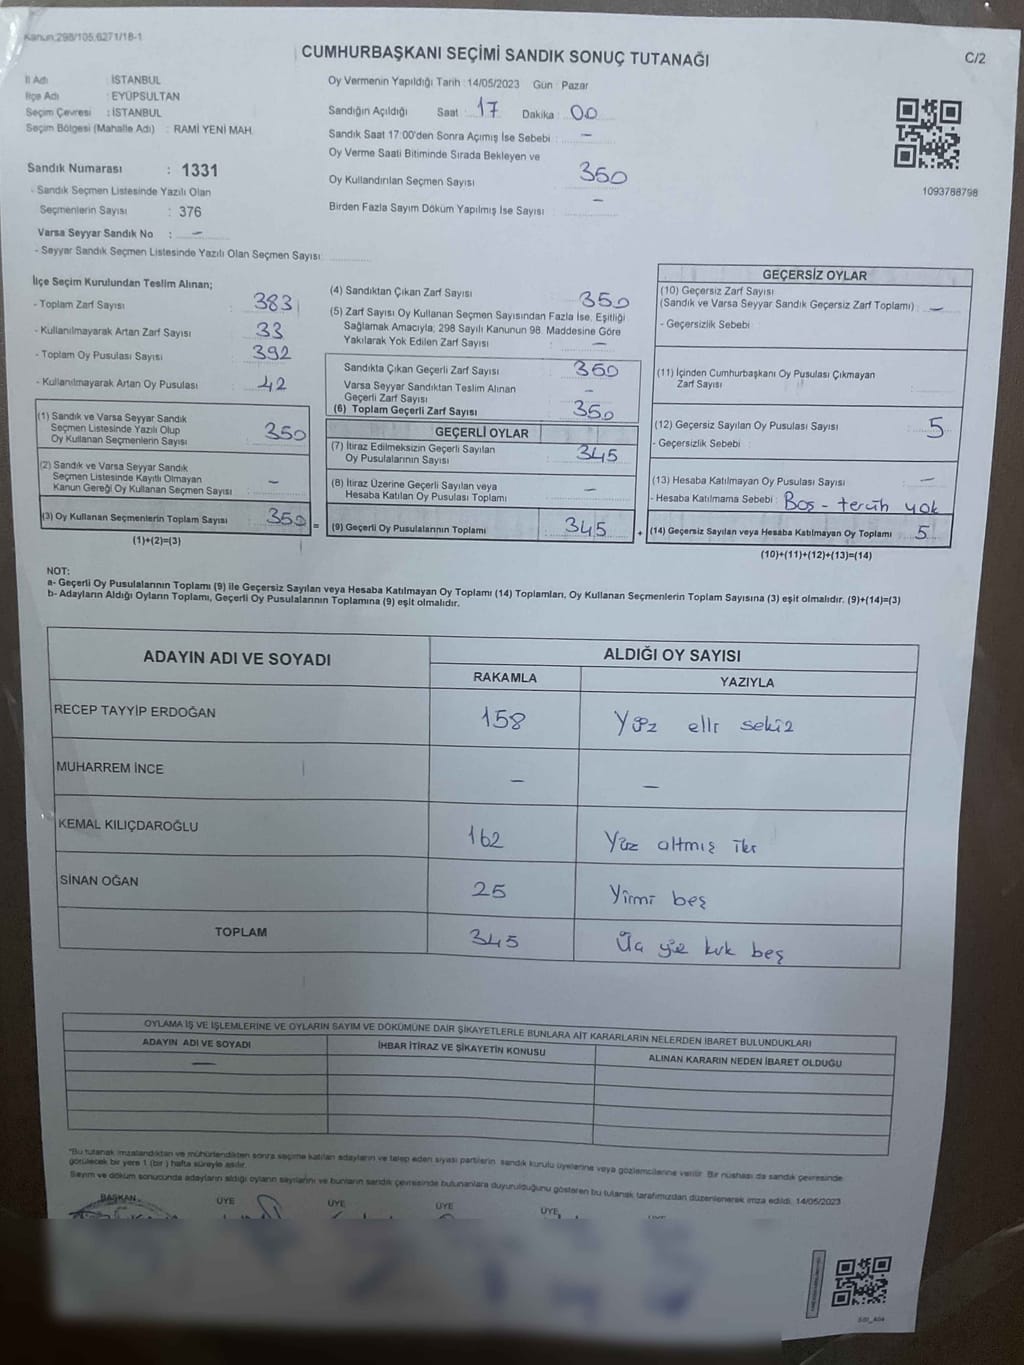 Kanun:298/105,6271/18-1
CUMHURBAŞKANI SEÇİMİ SANDIK SONUÇ TUTANAĞI
C/2
İl Adı : İSTANBUL
İlçe Adı : EYÜPSULTAN
Seçim Çevresi : İSTANBUL
Seçim Bölgesi (Mahalle Adı) : RAMİ YENİ MAH.
Sandık Numarası : 1331
- Sandık Seçmen Listesinde Yazılı Olan
Seçmenlerin Sayısı : 376
Varsa Seyyar Sandık No : -
- Seyyar Sandık Seçmen Listesinde Yazılı Olan Seçmen Sayısı:
Oy Vermenin Yapıldığı Tarih : 14/05/2023 Gün : Pazar
Sandığın Açıldığı Saat : 17 Dakika : 00
Sandık Saat 17:00'den Sonra Açımış İse Sebebi : -
Oy Verme Saati Bitiminde Sırada Bekleyen ve
Oy Kullandırılan Seçmen Sayısı : 350
Birden Fazla Sayım Döküm Yapılmış İse Sayısı : -
1093788798
İlçe Seçim Kurulundan Teslim Alınan;
- Toplam Zarf Sayısı : 383
- Kullanılmayarak Artan Zarf Sayısı : 33
- Toplam Oy Pusulası Sayısı : 392
- Kullanılmayarak Artan Oy Pusulası : 42
(1) Sandık ve Varsa Seyyar Sandık
Seçmen Listesinde Yazılı Olup
Oy Kullanan Seçmenlerin Sayısı : 350
(2) Sandık ve Varsa Seyyar Sandık
Seçmen Listesinde Kayıtlı Olmayan
Kanun Gereği Oy Kullanan Seçmen Sayısı : -
(3) Oy Kullanan Seçmenlerin Toplam Sayısı : 350
(1)+(2)=(3)
(4) Sandıktan Çıkan Zarf Sayısı : 350
(5) Zarf Sayısı Oy Kullanan Seçmen Sayısından Fazla İse, Eşitliği
Sağlamak Amacıyla, 298 Sayılı Kanunun 98. Maddesine Göre
Yakılarak Yok Edilen Zarf Sayısı : -
Sandıkta Çıkan Geçerli Zarf Sayısı : 350
Varsa Seyyar Sandıktan Teslim Alınan
Geçerli Zarf Sayısı : -
(6) Toplam Geçerli Zarf Sayısı : 350
GEÇERLİ OYLAR
(7) İtiraz Edilmeksizin Geçerli Sayılan
Oy Pusulalarının Sayısı : 345
(8) İtiraz Üzerine Geçerli Sayılan veya
Hesaba Katılan Oy Pusulası Toplamı : -
= (9) Geçerli Oy Pusulalarının Toplamı : 345
GEÇERSİZ OYLAR
(10) Geçersiz Zarf Sayısı
(Sandık ve Varsa Seyyar Sandık Geçersiz Zarf Toplamı) : -
- Geçersizlik Sebebi :
(11) İçinden Cumhurbaşkanı Oy Pusulası Çıkmayan
Zarf Sayısı :
(12) Geçersiz Sayılan Oy Pusulası Sayısı : 5
- Geçersizlik Sebebi :
(13) Hesaba Katılmayan Oy Pusulası Sayısı : -
- Hesaba Katılmama Sebebi : Boş - tercih yok
+ (14) Geçersiz Sayılan veya Hesaba Katılmayan Oy Toplamı : 5
(10)+(11)+(12)+(13)=(14)
NOT:
a- Geçerli Oy Pusulalarının Toplamı (9) ile Geçersiz Sayılan veya Hesaba Katılmayan Oy Toplamı (14) Toplamları, Oy Kullanan Seçmenlerin Toplam Sayısına (3) eşit olmalıdır. (9)+(14)=(3)
b- Adayların Aldığı Oyların Toplamı, Geçerli Oy Pusulalarının Toplamına (9) eşit olmalıdır.
ADAYIN ADI VE SOYADI
ALDIĞI OY SAYISI
RAKAMLA YAZIYLA
RECEP TAYYİP ERDOĞAN 158 Yüz elli sekiz
MUHARREM İNCE - -
KEMAL KILIÇDAROĞLU 162 Yüz altmış iki
SİNAN OĞAN 25 Yirmi beş
TOPLAM 345 Üç yüz kırk beş
OYLAMA İŞ VE İŞLEMLERİNE VE OYLARIN SAYIM VE DÖKÜMÜNE DAİR ŞİKAYETLERLE BUNLARA AİT KARARLARIN NELERDEN İBARET BULUNDUKLARI
ADAYIN ADI VE SOYADI İHBAR İTİRAZ VE ŞİKAYETİN KONUSU ALINAN KARARIN NEDEN İBARET OLDUĞU
-
*Bu tutanak imzalandıktan ve mühürlendikten sonra seçime katılan adayların ve talep eden siyasi partilerin sandık kurulu üyelerine veya gözlemcilerine verilir. Bir nüshası da sandık çevresinde
görülecek bir yere 1 (bir) hafta süreyle asılır.
Sayım ve döküm sonucunda adayların aldığı oyların sayılarını ve bunların sandık çevresinde bulunanlara duyurulduğunu gösteren bu tutanak tarafımızdan düzenlenerek imza edildi. 14/05/2023
BAŞKAN ÜYE ÜYE ÜYE ÜYE ÜYE